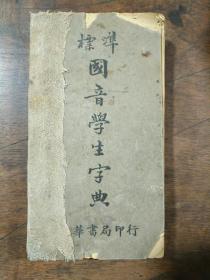 標準
國音學生字典
華書局印行